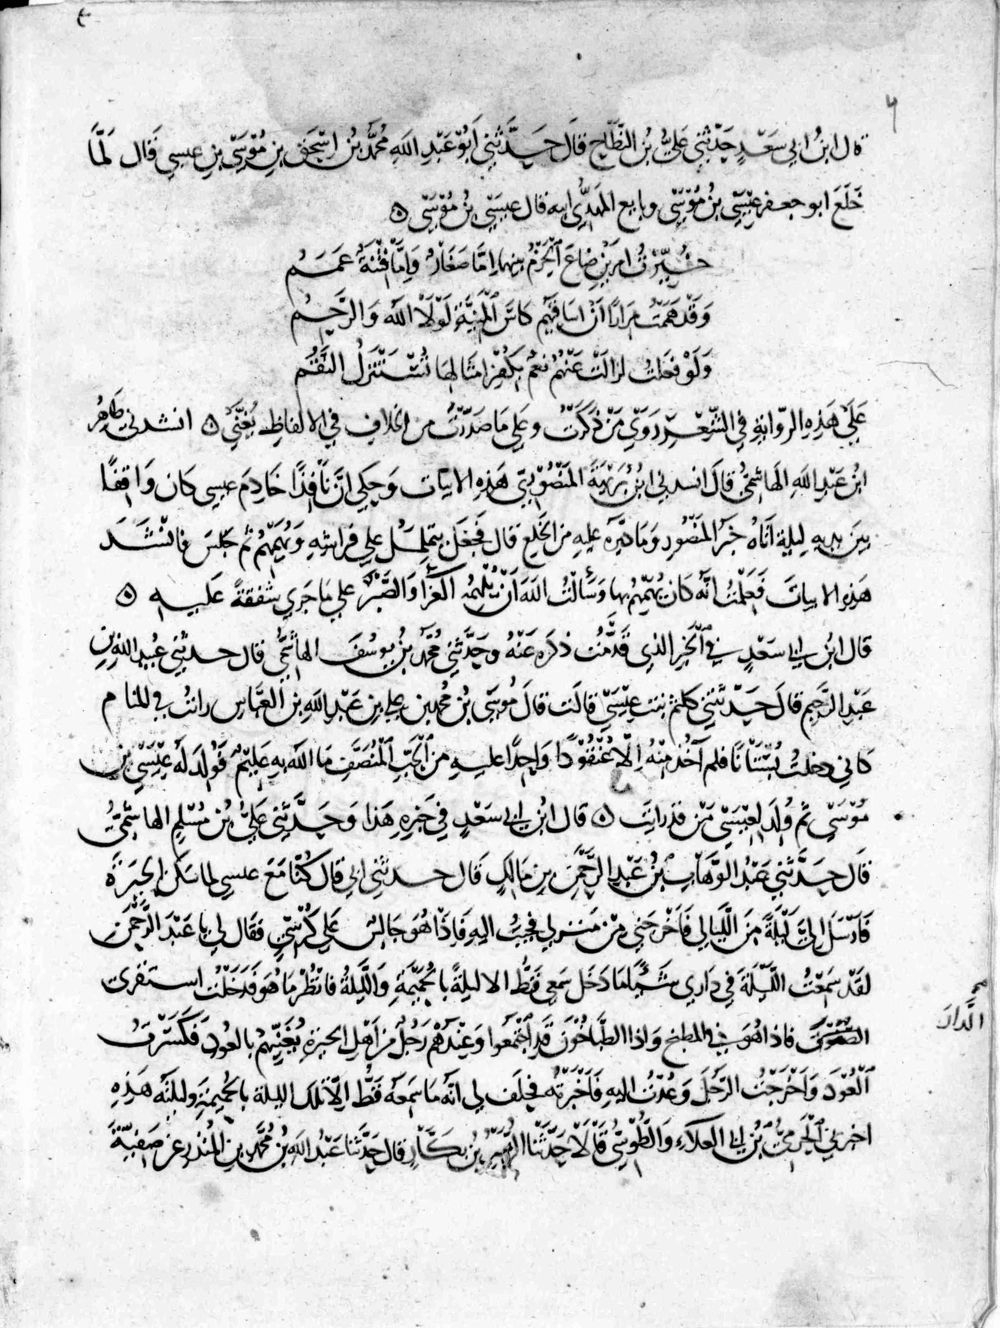 ٤
٦
قال ابن ابي سَعْدٍ حَدَّثني عَليُّ بن النَّطّاحِ قالَ حَدَّثني أبُو عَبْدِ اللهِ مُحمَّدُ بن اسْحَق بنِ مُوسَى بنِ عيسى قَال لمَّا
خَلَعَ ابو جعفر عِيْسَى بْن مُوْسَى وبايع المهْدِيَّ ابنه قال عيسَى بْنُ مُوْسَى ٥
خُيّرْتُ امرين ضاعَ الحَزْمُ بينهما امَّا صَغَارٌ وَامَّا فِتْنَةٌ عَمَمُ
وَقَدْ هَمَمْتُ مِرَارًا أنْ اسَاقيَهُم كَاسَ المنيَّةِ لَوْلَا اللهُ وَالرَّحِمُ
وَلَوْ فعَلتُ لزالَتْ عَنْهُمُ نعَمٌ بكُفْرِ امثالهَا تُسْتَنْزَلُ النِقَمُ
عَلَى هَذِهِ الرّوايَةِ في الشِّعْرِ رَوَى مَنْ ذَكَرْتُ وعلى مَا صَدَّرْتُ من الخلافِ في الالفاظِ يُغَنّى ٥ انشدني طاهِرُ
ابْن عَبْدِ اللهِ الهَاشِميُّ قالَ انشدني ابْنُ بُرَيْهَةَ المَنْصُوْريّ هَذِهِ الابيَات وَحكى انَّ نَافِذًا خَادِمَ عيسى كان وَاقفًا
بَينَ يديهِ ليلة أتَاهُ خبَرُ المَنْصُورِ وَمَا دَبَّرَهُ عليه مِن الخَلْعِ قال فَجَعَلَ يتملمَلُ على فِرَاشِهِ وَيُهَمْهِمُ ثم جَلسَ فانْشَدَ
هَذِهِ الابياتَ فَعَلِمْتُ انَّهُ كان يُهَمْهِمُ بها وَسَألْتُ اللهَ أنْ يُلهِمَهُ العَزَاءَ وَالصَّبْرَ على مَا جَرى شَفقةً عَلَيه ٥
قال ابْن أبي سَعْدٍ في الخبَرِ الذِي قَدَّمْتُ ذِكرَهُ عَنْهُ وحَدَّثني مُحَمَّد بْنُ يوسُفَ الهاشميُّ قال حدثني عبد الله بن
عَبْدِ الرَّحيمِ قالَ حَدَّثَتْني كلثمُ بنت عِيْسَى قالَت قالَ مُوسَى بْن مُحمدِ بن عليّ بن عَبْدِ اللهِ بْنِ العَبَّاسِ رايْتُ في المنام
كاني دخلتُ بُسْتَانًا فلم آخُذ مِنْهُ الّا عُنْقُوْدًا وَاحِدًا عليهِ مِن الحَبِّ المُتَرَصَّفِ مَا اللهُ بهِ عَلِيْمٌ فَوُلِدَ لَهُ عِيْسَى بْنُ
مُوْسَى ثم وُلِدَ لِعيْسَى مَنْ قد رايت ٥ قال ابْن أبي سَعْدٍ في خَبَرِهِ هَذَا وَحَدَّثَني عَليُّ بْن مُسْلِم الهاشميّ
قالَ حَدَّثَني عَبْدُ الوَهَّابِ بْنُ عَبْدِ الرَّحْمٰنِ بنِ مَالِكٍ قال حدثني ابي قال كنَّا مَعَ عيسى لما سَكنَ الحِيْرَةَ
فَارْسَلَ اليَّ لَيْلَةً مِنَ اللَّيَالي فَاخْرجَني مِنْ مَنزلي فجئْتُ اليهِ فَاذا هُوَ جَالسٌ عَلى كُرْسيٍّ فقال لي يا عَبْدَ الرَّحْمٰن
لقَدْ سَمِعْتُ اللَّيْلَةَ في دَاري شَيْئًا مَا دَخَل سَمْعي قَطُّ الا ليلةً بالحُمَيْمَةِ وَاللَّيْلَةَ فانظُرْ مَا هُوَ فَدَخَلْتُ استقري
الصَّوْتَ فاذا هُوَ في المطبخِ وَاذا الطَبَّاخُوْنَ قَد اجْتمعوا وَعِنْدَهُم رَجُلٌ مِن اهْلِ الحيرةِ يُغَنِّيْهِمْ بالعُودِ فكَسَرْتُ
العُوْدَ وَاخْرَجْتُ الرَّجُلَ وَعُدْتُ اليهِ فَأخْبَرْتُهُ فحلَفَ لي انَّهُ مَا سَمِعَهُ قَطُّ الّا تلكَ الليلة بالحُمَيْمَةِ وليلتَهُ هَذِهِ
اخبرني الحَرَميُّ بْن أبي العلاءِ وَالطُّوسيُّ قالَا حَدَّثَنا الزُّبَيْرُ بْن بكَّارٍ قال حَدَّثَنا عَبْدُ اللهِ بْن مُحَمَّدِ بن المُنذِرِ عن صَفيَّةَ
الدّار